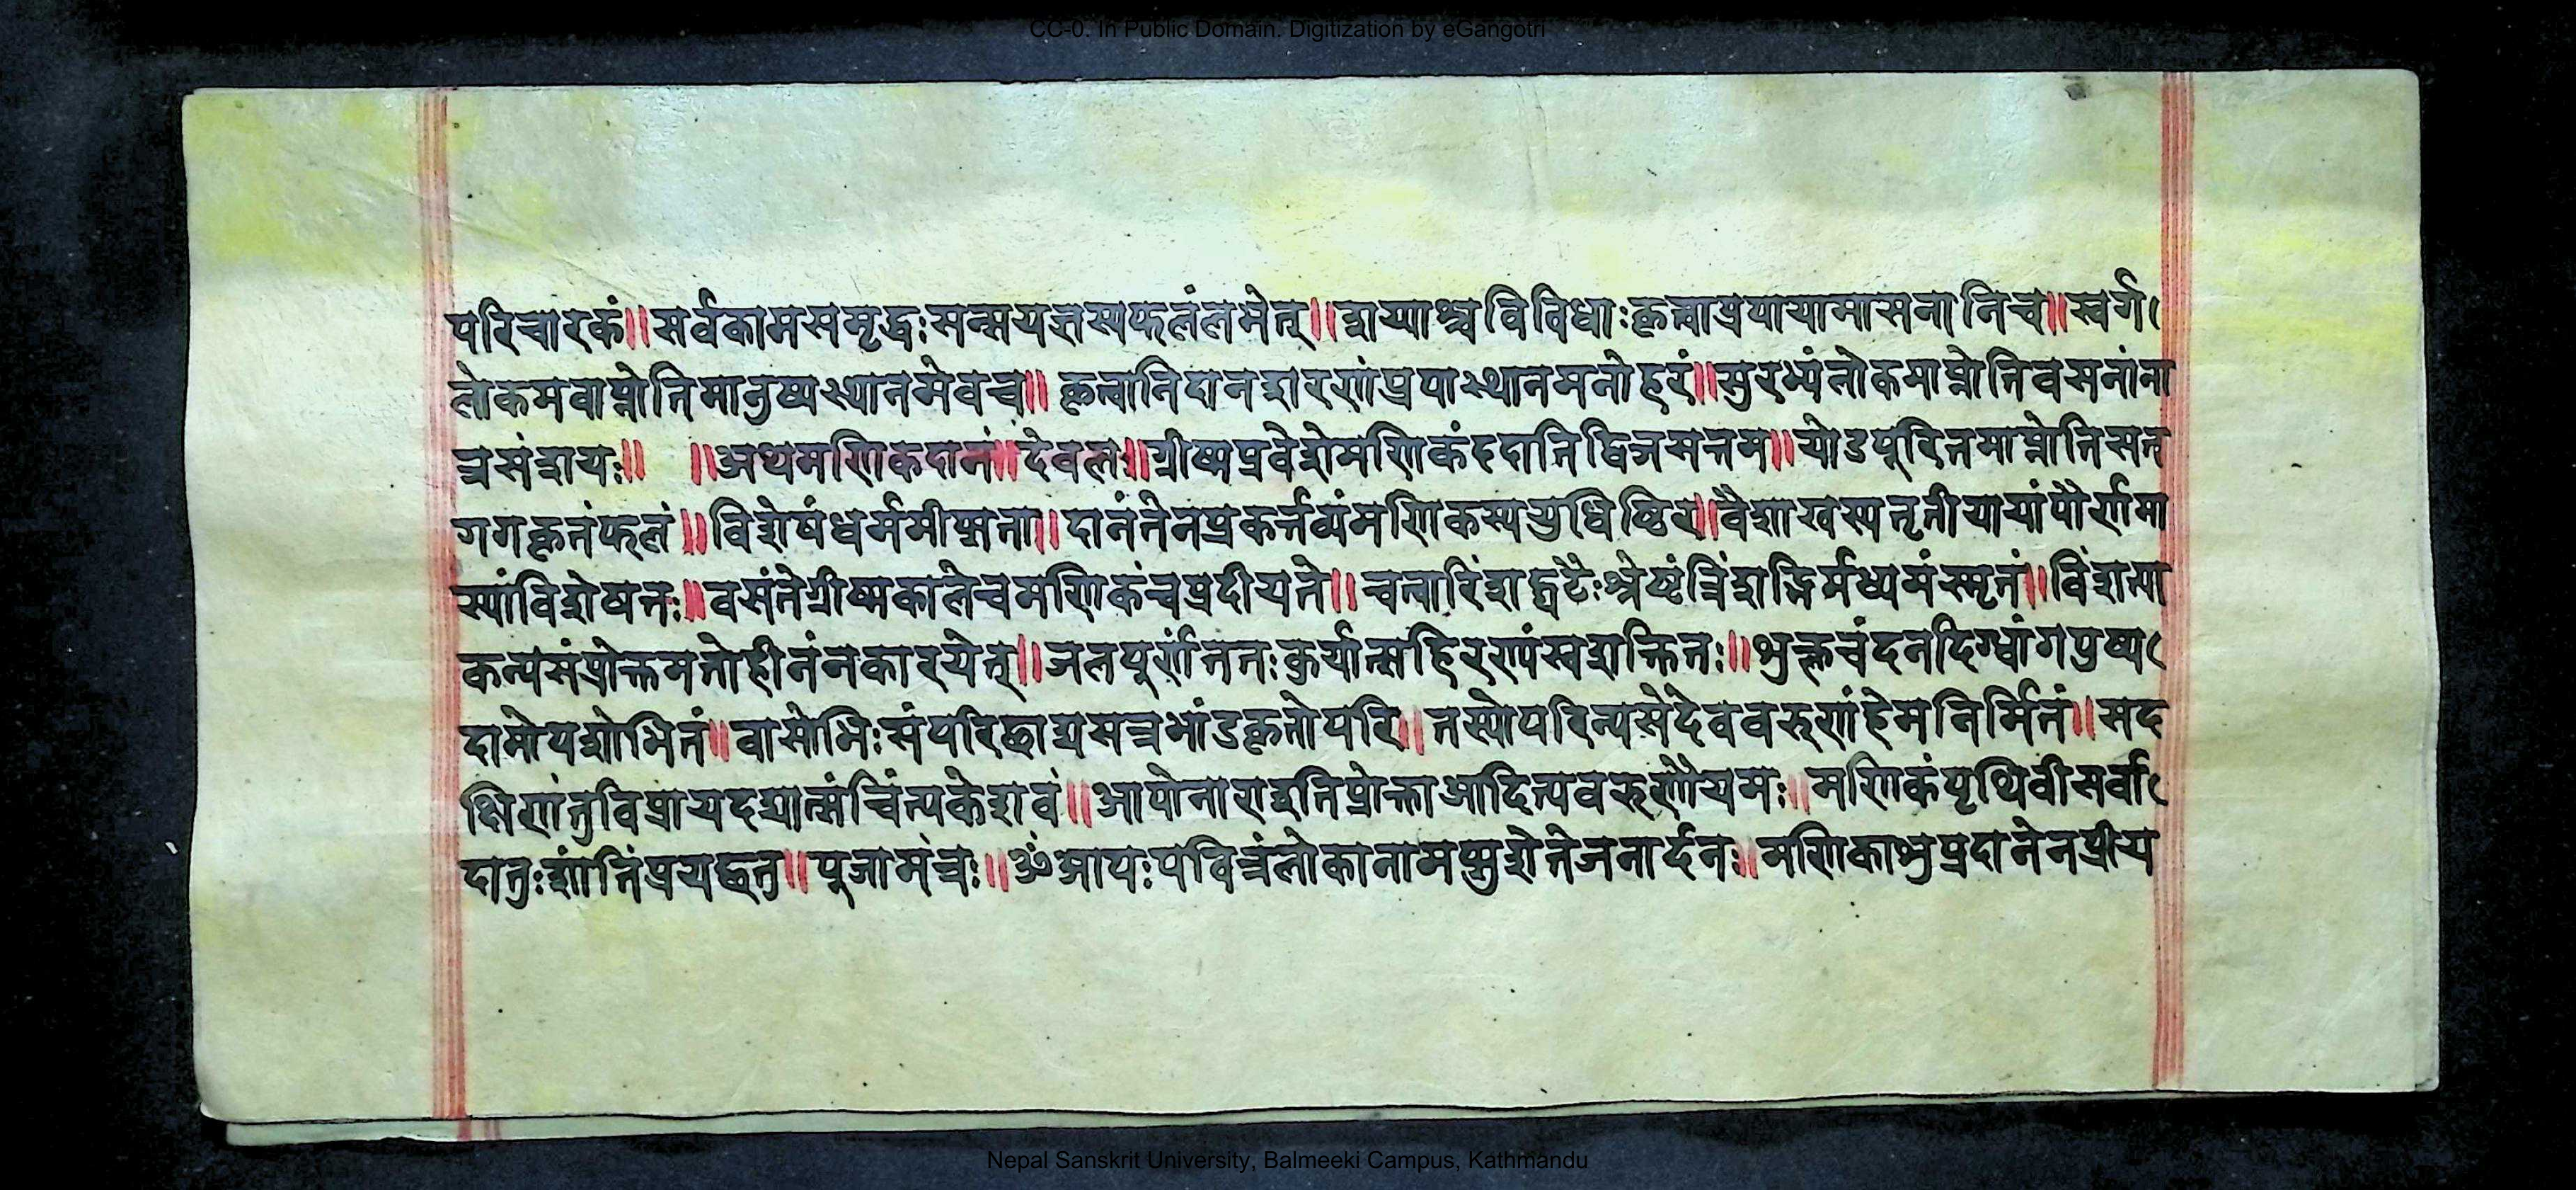 CC-0. In Public Domain. Digitization by eGangotri
परिचारकं॥सर्वकामसमृद्धःसन्मयज्ञस्यफलंलभेत्॥शय्याश्चविविधाःकृत्वाप्रपायामासनानिच॥स्वर्ग
लोकमवाप्नोतिमानुष्यस्थानमेवच॥कृत्वानिदानशरणंप्रपास्थानमनोहरं॥सुरभ्यंलोकमाप्नोतिवसनांना
त्रसंशयः॥ ॥अथमणिकदानं॥देवलः॥ग्रीष्मप्रवेशेमणिकंददातिद्विजसत्तम॥योऽपूरितमाप्नोतिसत
गगकृतंफलं॥विशेषंधर्ममीप्सता॥दानंतेनप्रकर्त्तव्यंमणिकस्ययुधिष्ठिर॥वैशाखस्यतृतीयायांपौर्णमा
स्यांविशेषतः॥वसंतेग्रीष्मकालेचमणिकंचप्रदीयते॥चत्वारिंशद्घटैःश्रेष्ठंत्रिंशद्भिर्मध्यमंस्मृतं॥विंशत्या
कन्यसंप्रोक्तमतोहीनंनकारयेत्॥जलपूर्णंततःकुर्यात्सहिरण्यंस्वशक्तितः॥शुक्लचंदनदिग्धांगपुष्प
दामोपशोभितं॥वासोभिःसंपरिछाद्यसन्नभांडकृतोपरि॥तस्योपरिन्यसेदेववरुणंहेमनिर्मितं॥सद
क्षिणांतुविप्रायदद्यात्संचिंत्यकेशवं॥आपोनाराइतिप्रोक्ताआदित्यवरुणोयमः॥मणिकंपृथिवीसर्वा
दातुःशांतिंप्रयछतु॥पूजामंत्रः॥ॐआपःपवित्रंलोकानामप्सुशेतेजनार्दनः॥मणिकाशुप्रदानेनप्रीय
Nepal Sanskrit University, Balmeeki Campus, Kathmandu